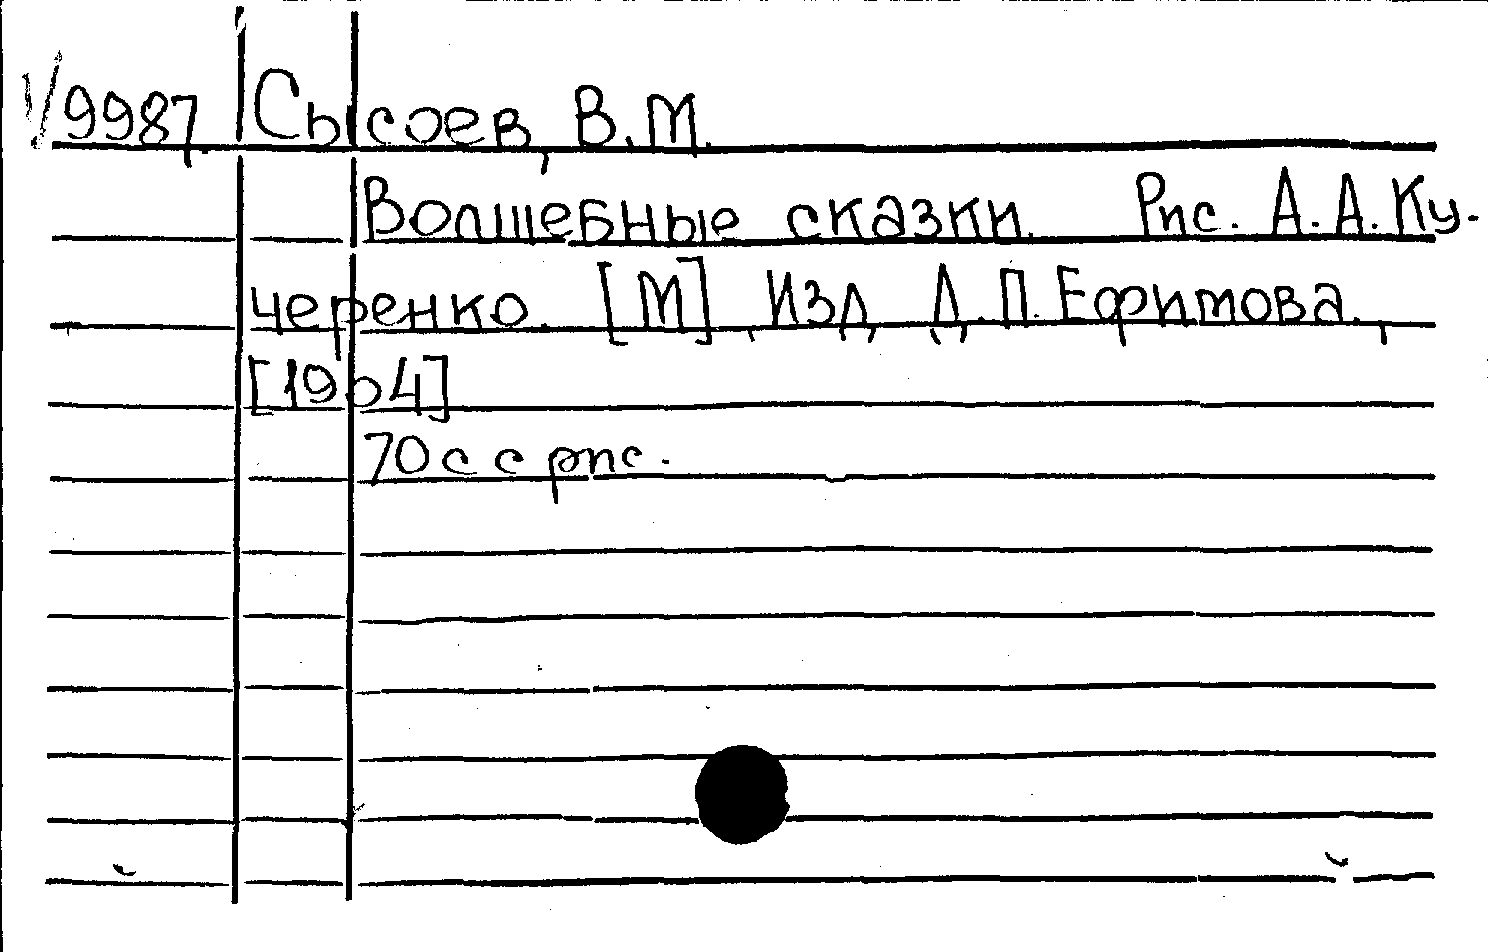 √9987. Сысоев, В.М.
Волшебные сказки. Рис. А.А.Ку-
черенко. [М], Изд, Д.П.Ефимова.,
[1904]
70 с с рис.